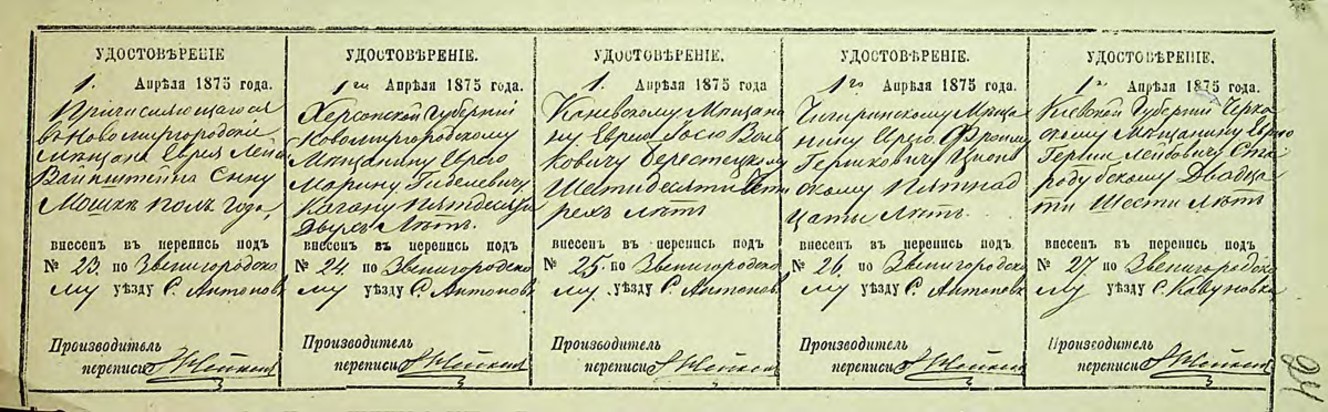 УДОСТОВѢРЕНІЕ
1. Апрѣля 1875 года.
Причисляющагося
въ Новомиргородскіе
мѣщане Еврея Лейбы
Вайнштейна Сыну
Мошкѣ полъ года,
внесенъ въ перепись подъ
№ 23. по Звенигородско
му уѣзду С. Антоновк
Производитель
переписи
УДОСТОВѢРЕНІЕ.
1го Апрѣля 1875 года.
Херсонской Губерніи
Новомиргородскому
Мѣщанину Еврею
Марину Гиделевичу
Кагану Пятдесяти
Двухъ Лѣтъ.
внесенъ въ перепись подъ
№ 24. по Звенигородско
му уѣзду С. Антоновк
Производитель
переписи
УДОСТОВѢРЕНІЕ.
1. Апрѣля 1875 года
Каневскому Мѣщани
ну Еврею Іосю Воль
ковичу Берестецкому
Шестидесяти Чет
рехъ лѣтъ
внесенъ въ перепись подъ
№ 25. по Звенигородско
му уѣзду С. Антонов
Производитель
переписи
УДОСТОВѢРЕНІЕ.
1го Апрѣля 1875 года.
Чигиринскому Мѣща
нину Еврею Фроиму
Гершковичу
скому Пятнад
цаты Лѣтъ.
внесенъ въ перепись подъ
№ 26. по Звенигородско
му уѣзду С. Антоновк
Производитель
переписи
УДОСТОВѢРЕНІЕ.
1го Апрѣля 1875 года.
Кіевской Губерніи Черка
скому Мѣщанину Еврею
Гершку Лейбовичу Ста
родубскому Двадца
ти Шести Лѣтъ
внесенъ въ перепись подъ
№ 27. по Звенигородско
му уѣзду С. Кавуновка
Производитель
переписи
24